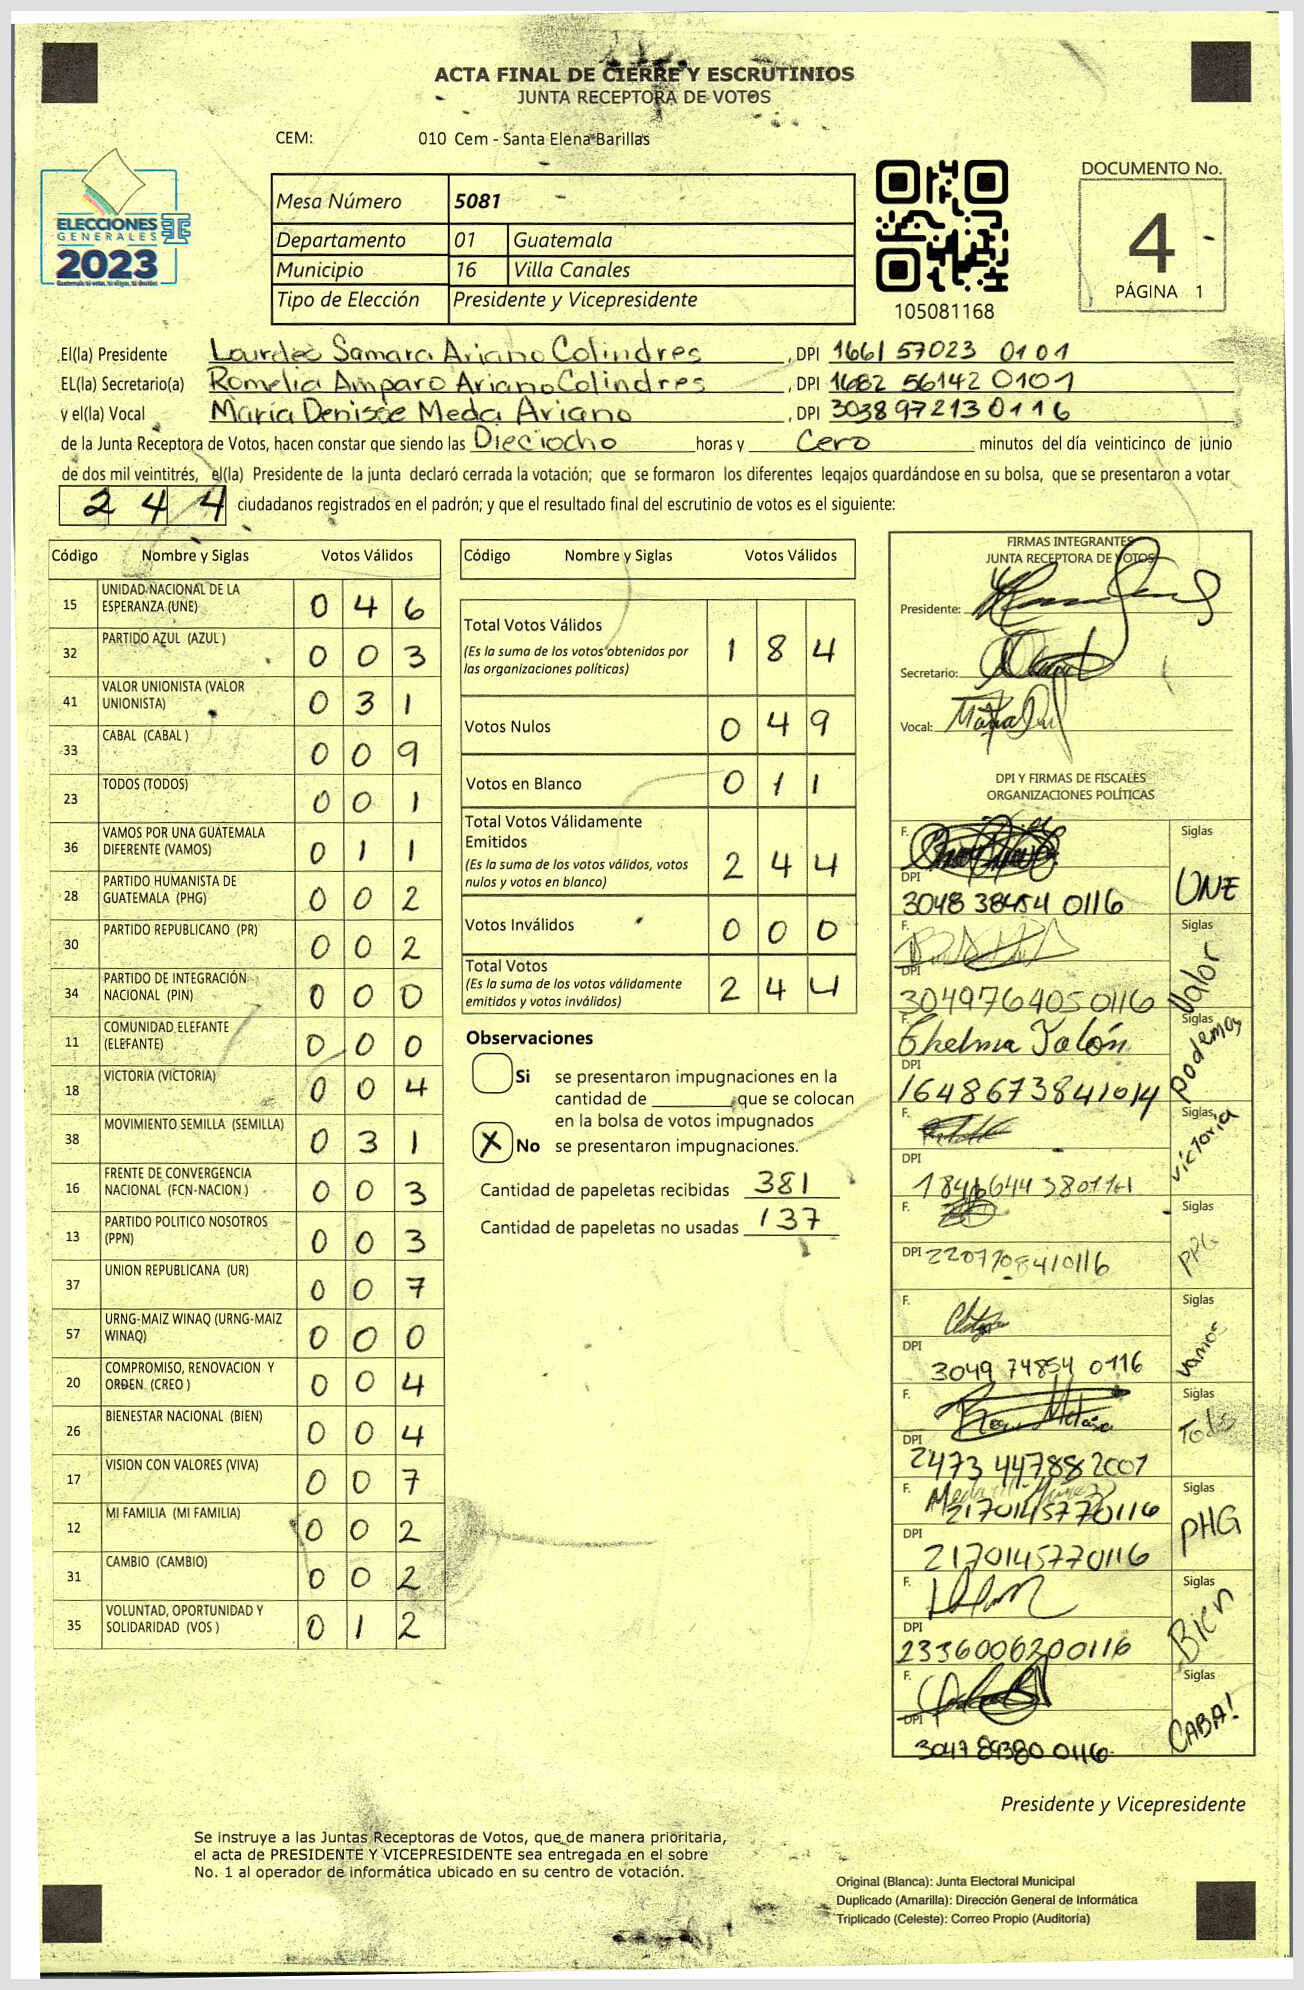 ACTA FINAL DE CIERRE Y ESCRUTINIOS
JUNTA RECEPTORA DE VOTOS
CEM: 010 Cem - Santa Elena Barillas
ELECCIONES
GENERALES
2023
Mesa Número 5081
Departamento 01 Guatemala
Municipio 16 Villa Canales
Tipo de Elección Presidente y Vicepresidente
105081168
DOCUMENTO No.
4
PÁGINA 1
El(la) Presidente Lourdes Samara Ariano Colindres, DPI 1661 57023 0101
EL(la) Secretario(a) Romelia Amparo Ariano Colindres, DPI 1682 56142 0101
y el(la) Vocal María Denisse Meda Ariano, DPI 3038 97213 0116
de la Junta Receptora de Votos, hacen constar que siendo las Dieciocho horas y Cero minutos del día veinticinco de junio
de dos mil veintitrés, el(la) Presidente de la junta declaró cerrada la votación; que se formaron los diferentes legajos guardándose en su bolsa, que se presentaron a votar
244 ciudadanos registrados en el padrón; y que el resultado final del escrutinio de votos es el siguiente:
Código Nombre y Siglas Votos Válidos
15 UNIDAD NACIONAL DE LA ESPERANZA (UNE) 0 4 6
32 PARTIDO AZUL (AZUL) 0 0 3
41 VALOR UNIONISTA (VALOR UNIONISTA) 0 3 1
33 CABAL (CABAL) 0 0 9
23 TODOS (TODOS) 0 0 1
36 VAMOS POR UNA GUATEMALA DIFERENTE (VAMOS) 0 1 1
28 PARTIDO HUMANISTA DE GUATEMALA (PHG) 0 0 2
30 PARTIDO REPUBLICANO (PR) 0 0 2
34 PARTIDO DE INTEGRACIÓN NACIONAL (PIN) 0 0 0
11 COMUNIDAD ELEFANTE (ELEFANTE) 0 0 0
18 VICTORIA (VICTORIA) 0 0 4
38 MOVIMIENTO SEMILLA (SEMILLA) 0 3 1
16 FRENTE DE CONVERGENCIA NACIONAL (FCN-NACION) 0 0 3
13 PARTIDO POLITICO NOSOTROS (PPN) 0 0 3
37 UNION REPUBLICANA (UR) 0 0 7
57 URNG-MAIZ WINAQ (URNG-MAIZ WINAQ) 0 0 0
20 COMPROMISO, RENOVACION Y ORDEN (CREO) 0 0 4
26 BIENESTAR NACIONAL (BIEN) 0 0 4
17 VISION CON VALORES (VIVA) 0 0 7
12 MI FAMILIA (MI FAMILIA) 0 0 2
31 CAMBIO (CAMBIO) 0 0 2
35 VOLUNTAD, OPORTUNIDAD Y SOLIDARIDAD (VOS) 0 1 2
Código Nombre y Siglas Votos Válidos
Total Votos Válidos 1 8 4
(Es la suma de los votos obtenidos por
las organizaciones políticas)
Votos Nulos 0 4 9
Votos en Blanco 0 1 1
Total Votos Válidamente
Emitidos 2 4 4
(Es la suma de los votos válidos, votos
nulos y votos en blanco)
Votos Inválidos 0 0 0
Total Votos 2 4 4
(Es la suma de los votos válidamente
emitidos y votos inválidos)
Observaciones
Si se presentaron impugnaciones en la
cantidad de ________ que se colocan
en la bolsa de votos impugnados
X No se presentaron impugnaciones.
Cantidad de papeletas recibidas 381
Cantidad de papeletas no usadas 137
FIRMAS INTEGRANTES
JUNTA RECEPTORA DE VOTOS
Presidente:
Secretario:
Vocal:
DPI Y FIRMAS DE FISCALES
ORGANIZACIONES POLÍTICAS
F. Siglas UNE
DPI 3048 38454 0116
F. Siglas Valor
DPI 3049764050116
F. Thelma Jalón Siglas Podemos
DPI 1648673841014
F. Siglas victoria
DPI
F. Siglas
DPI 2207708410116
F. Siglas Vamos
DPI 3049 74854 0116
F. Siglas Todos
DPI 2473 44788 2001
F. 2170145770116 Siglas PHG
DPI 2170145770116
F. Siglas Bien
DPI 2336006200116
F. Siglas CABAl
DPI 3047 89380 0116
Presidente y Vicepresidente
Se instruye a las Juntas Receptoras de Votos, que de manera prioritaria,
el acta de PRESIDENTE Y VICEPRESIDENTE sea entregada en el sobre
No. 1 al operador de informática ubicado en su centro de votación.
Original (Blanca): Junta Electoral Municipal
Duplicado (Amarilla): Dirección General de Informática
Triplicado (Celeste): Correo Propio (Auditoría)